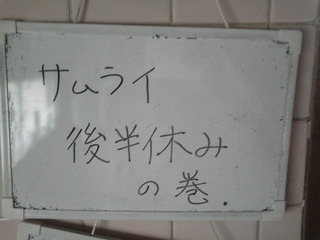 サムライ
後半休み
の巻.